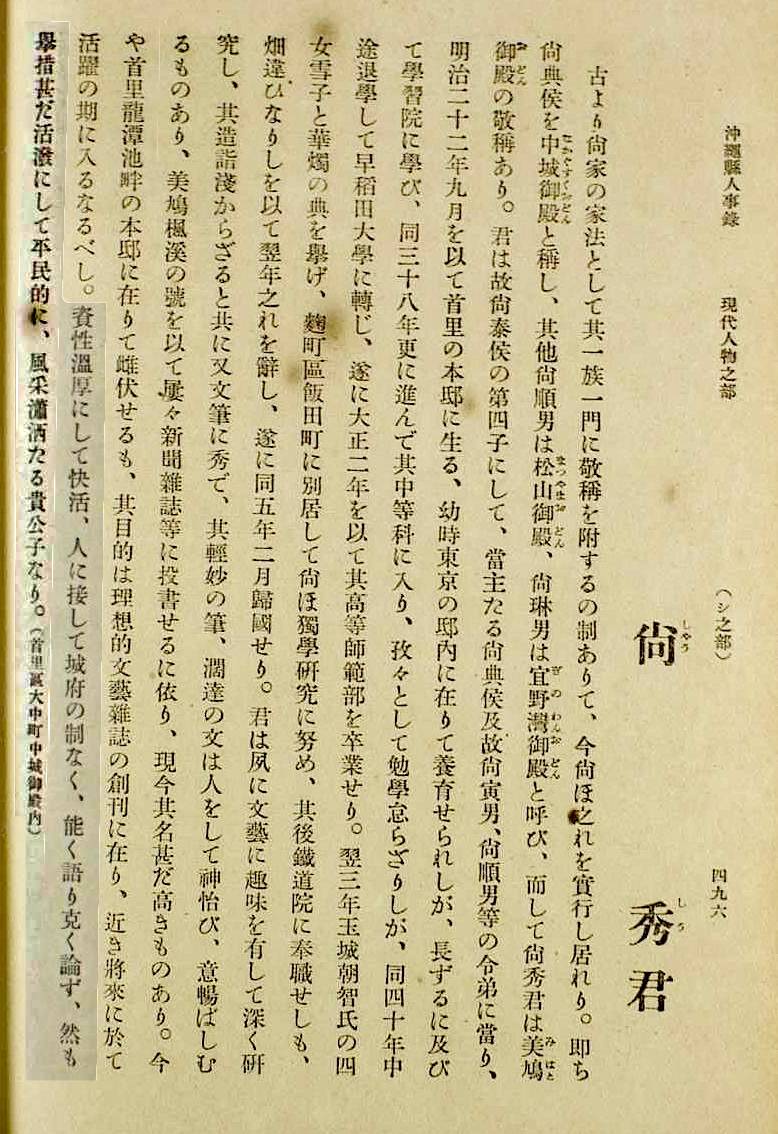 沖繩縣人事錄　現代人物之部　（シ之部）　四九六
尙　秀君
しやう　しう
古より尙家の家法として其一族一門に敬稱を附するの制ありて、今尙ほ之れを實行し居れり。卽ち
尙典侯を中城御殿と稱し、其他尙順男は松山御殿、尙琳男は宜野灣御殿と呼び、而して尙秀君は美鳩
なかぐすくおどん　まつやまおどん　ぎのわんおどん　みはと
御殿の敬稱あり。君は故尙泰侯の第四子にして、當主たる尙典侯及故尙寅男、尙順男等の令弟に當り、
おどん
明治二十二年九月を以て首里の本邸に生る、幼時東京の邸內に在りて養育せられしが、長ずるに及び
て學習院に學び、同三十八年更に進んで其中等科に入り、孜々として勉學怠らざりしが、同四十年中
途退學して早稻田大學に轉じ、遂に大正二年を以て其高等師範部を卒業せり。翌三年玉城朝智氏の四
女雪子と華燭の典を擧げ、麴町區飯田町に別居して尙ほ獨學硏究に努め、其後鐵道院に奉職せしも、
畑違ひなりしを以て翌年之れを辭し、遂に同五年二月歸國せり。君は夙に文藝に趣味を有して深く硏
究し、其造詣淺からざると共に又文筆に秀で、其輕妙の筆、濶達の文は人をして神怡び、意暢ばしむ
るものあり、美鳩楓溪の號を以て屢々新聞雜誌等に投書せるに依り、現今其名甚だ高きものあり。今
や首里龍潭池畔の本邸に在りて雌伏せるも、其目的は理想的文藝雜誌の創刊に在り、近き將來に於て
活躍の期に入るなるべし。資性溫厚にして快活、人に接して城府の制なく、能く語り克く論ず、然も
擧措甚だ活潑にして平民的に、風采瀟洒たる貴公子なり。（首里區大中町中城御殿內）